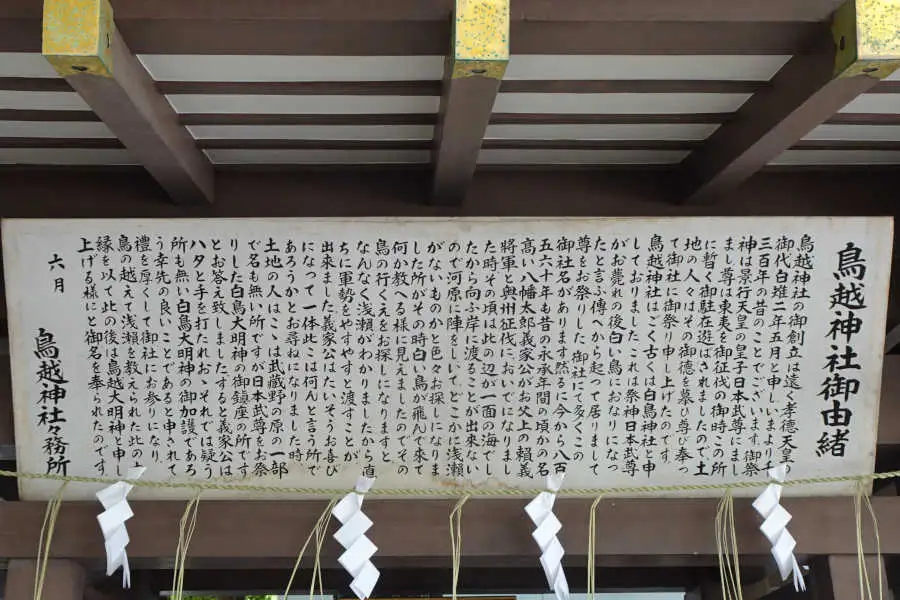 鳥越神社御由緒
鳥越神社の御創立は遠く孝德天皇の
御代白雉二年五月と申しいまより千
三百年の昔のことでございます。御祭
神は景行天皇の皇子日本武尊にまし
まし尊は東夷を御征伐の御時この所
に暫く御駐在遊ばされましたので土
地の人々はその御徳を慕ひ尊び奉っ
て御社に御祭り申し上げたのです
鳥越神社はごく古くは白鳥神社と申
しておりましたこれは祭神日本武尊
がお薨れの後白い鳥におなりになっ
たと言ふ傳へから起って居りまして
尊をお祭りした御社にて多くこの
御社名があります然るに今から八百
五六十年も昔の永承年間の頃かの名
高い八幡太郎義家公がお父上の頼義
將軍と奥州征伐においでになりまし
た時その頃は此の辺が一面の海でし
たから向ふ岸に渡ることが出来ない
ので河原に陣をしいてどこかに浅瀬
がないものかと色々お探しになりま
した所がその時白い鳥が飛んで來て
何か教へる様に見えましたのでその
鳥の行くえをお探しになりますと
なんなく浅瀬がわかりましたから直
ちに軍勢をやすやすと渡すことが
出来ました義家公はたいそうお喜び
になって一体此こは何んと言う所で
あろうかとお尋ねになりました時
土地の人はこゝは武蔵野の原の一部
で名も無い所ですが日本武尊をお祭
りした白鳥大明神の御鎮座の所です
とお答え致しましたすると義家公は
ハタと手を打たれおゝそれでは疑う
所も無い白鳥大明神の御加護であろ
う幸先の良いことであると申されて
禮を厚くして御社にお参りになり、
鳥の越えて浅瀬を教えられた此の因
縁を以て此の後は鳥越大明神と申し
上げる様にと御名を奉られたのです。
六月
鳥越神社々務所